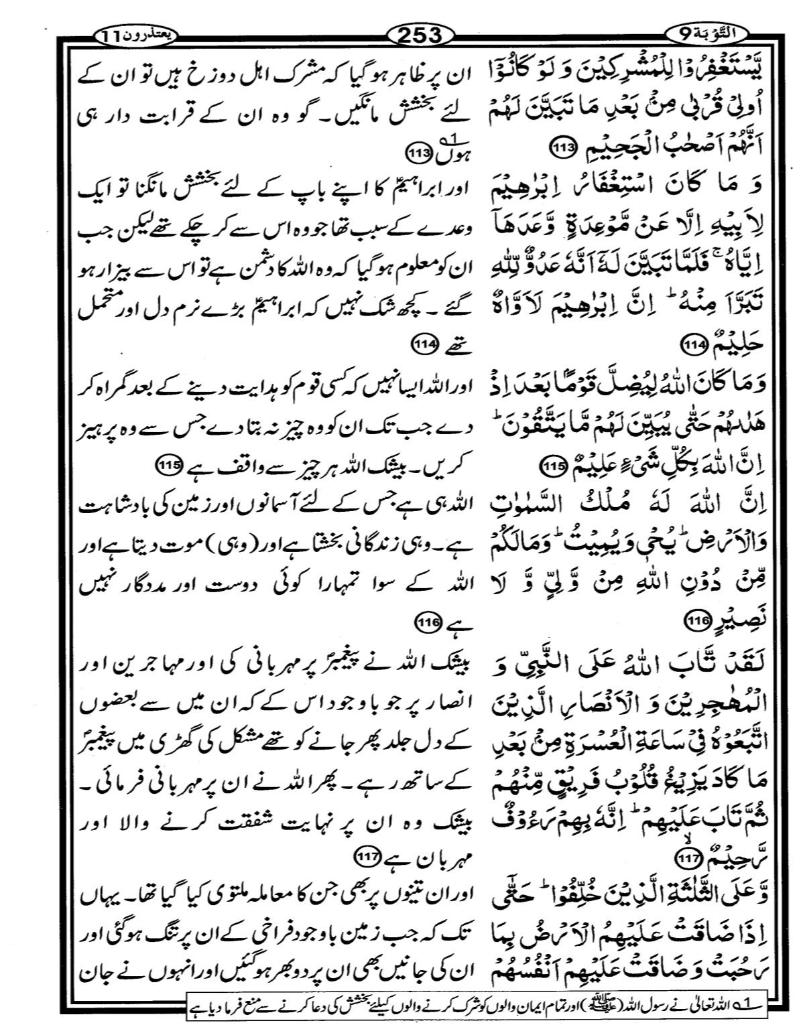 التَّوْبَة 9
253
يعتذرون 11
يَّسْتَغْفِرُوْا لِلْمُشْرِكِيْنَ وَ لَوْ كَانُوْۤا
اُولِيْ قُرْبٰى مِنْۢ بَعْدِ مَا تَبَيَّنَ لَهُمْ
اَنَّهُمْ اَصْحٰبُ الْجَحِيْمِ 113
وَ مَا كَانَ اسْتِغْفَارُ اِبْرٰهِيْمَ
لِاَبِيْهِ اِلَّا عَنْ مَّوْعِدَةٍ وَّعَدَهَاۤ
اِيَّاهُ ۚ فَلَمَّا تَبَيَّنَ لَهٗۤ اَنَّهٗ عَدُوٌّ لِّلّٰهِ
تَبَرَّاَ مِنْهُ ؕ اِنَّ اِبْرٰهِيْمَ لَاَوَّاهٌ
حَلِيْمٌ 114
وَ مَا كَانَ اللّٰهُ لِيُضِلَّ قَوْمًۢا بَعْدَ اِذْ
هَدٰىهُمْ حَتّٰى يُبَيِّنَ لَهُمْ مَّا يَتَّقُوْنَ ؕ
اِنَّ اللّٰهَ بِكُلِّ شَيْءٍ عَلِيْمٌ 115
اِنَّ اللّٰهَ لَهٗ مُلْكُ السَّمٰوٰتِ
وَالْاَرْضِ ؕ يُحْيٖ وَيُمِيْتُ ؕ وَمَا لَكُمْ
مِّنْ دُوْنِ اللّٰهِ مِنْ وَّلِيٍّ وَّ لَا
نَصِيْرٍ 116
لَقَدْ تَّابَ اللّٰهُ عَلَى النَّبِيِّ وَ
الْمُهٰجِرِيْنَ وَ الْاَنْصَارِ الَّذِيْنَ
اتَّبَعُوْهُ فِيْ سَاعَةِ الْعُسْرَةِ مِنْۢ بَعْدِ
مَا كَادَ يَزِيْغُ قُلُوْبُ فَرِيْقٍ مِّنْهُمْ
ثُمَّ تَابَ عَلَيْهِمْ ؕ اِنَّهٗ بِهِمْ رَءُوْفٌ
رَّحِيْمٌ ۙ 117
وَّ عَلَى الثَّلٰثَةِ الَّذِيْنَ خُلِّفُوْا ؕ حَتّٰۤى
اِذَا ضَاقَتْ عَلَيْهِمُ الْاَرْضُ بِمَا
رَحُبَتْ وَ ضَاقَتْ عَلَيْهِمْ اَنْفُسُهُمْ
ان پر ظاہر ہو گیا کہ مشرک اہل دوزخ ہیں تو ان کے
لئے بخشش مانگیں۔ گو وہ ان کے قرابت دار ہی
ہوں 1؎ 113
اور ابراہیمؑ کا اپنے باپ کے لئے بخشش مانگنا تو ایک
وعدے کے سبب تھا جو وہ اس سے کر چکے تھے لیکن جب
ان کو معلوم ہو گیا کہ وہ اللہ کا دشمن ہے تو اس سے بیزار ہو
گئے۔ کچھ شک نہیں کہ ابراہیمؑ بڑے نرم دل اور متحمل
تھے 114
اور اللہ ایسا نہیں کہ کسی قوم کو ہدایت دینے کے بعد گمراہ کر
دے جب تک ان کو وہ چیز نہ بتا دے جس سے وہ پرہیز
کریں۔ بیشک اللہ ہر چیز سے واقف ہے 115
اللہ ہی ہے جس کے لئے آسمانوں اور زمین کی بادشاہت
ہے۔ وہی زندگانی بخشتا ہے اور (وہی) موت دیتا ہے اور
اللہ کے سوا تمہارا کوئی دوست اور مددگار نہیں
ہے 116
بیشک اللہ نے پیغمبرؐ پر مہربانی کی اور مہاجرین اور
انصار پر جو باوجود اس کے کہ ان میں سے بعضوں
کے دل جلد پھر جانے کو تھے مشکل کی گھڑی میں پیغمبرؐ
کے ساتھ رہے۔ پھر اللہ نے ان پر مہربانی فرمائی۔
بیشک وہ ان پر نہایت شفقت کرنے والا اور
مہربان ہے 117
اور ان تینوں پر بھی جن کا معاملہ ملتوی کیا گیا تھا۔ یہاں
تک کہ جب زمین باوجود فراخی کے ان پر تنگ ہو گئی اور
ان کی جانیں بھی ان پر دوبھر ہو گئیں اور انہوں نے جان
1؎ اللہ تعالیٰ نے رسول اللہ (ﷺ) اور تمام ایمان والوں کو شرک کرنے والوں کیلئے بخشش کی دعا کرنے سے منع فرما دیا ہے